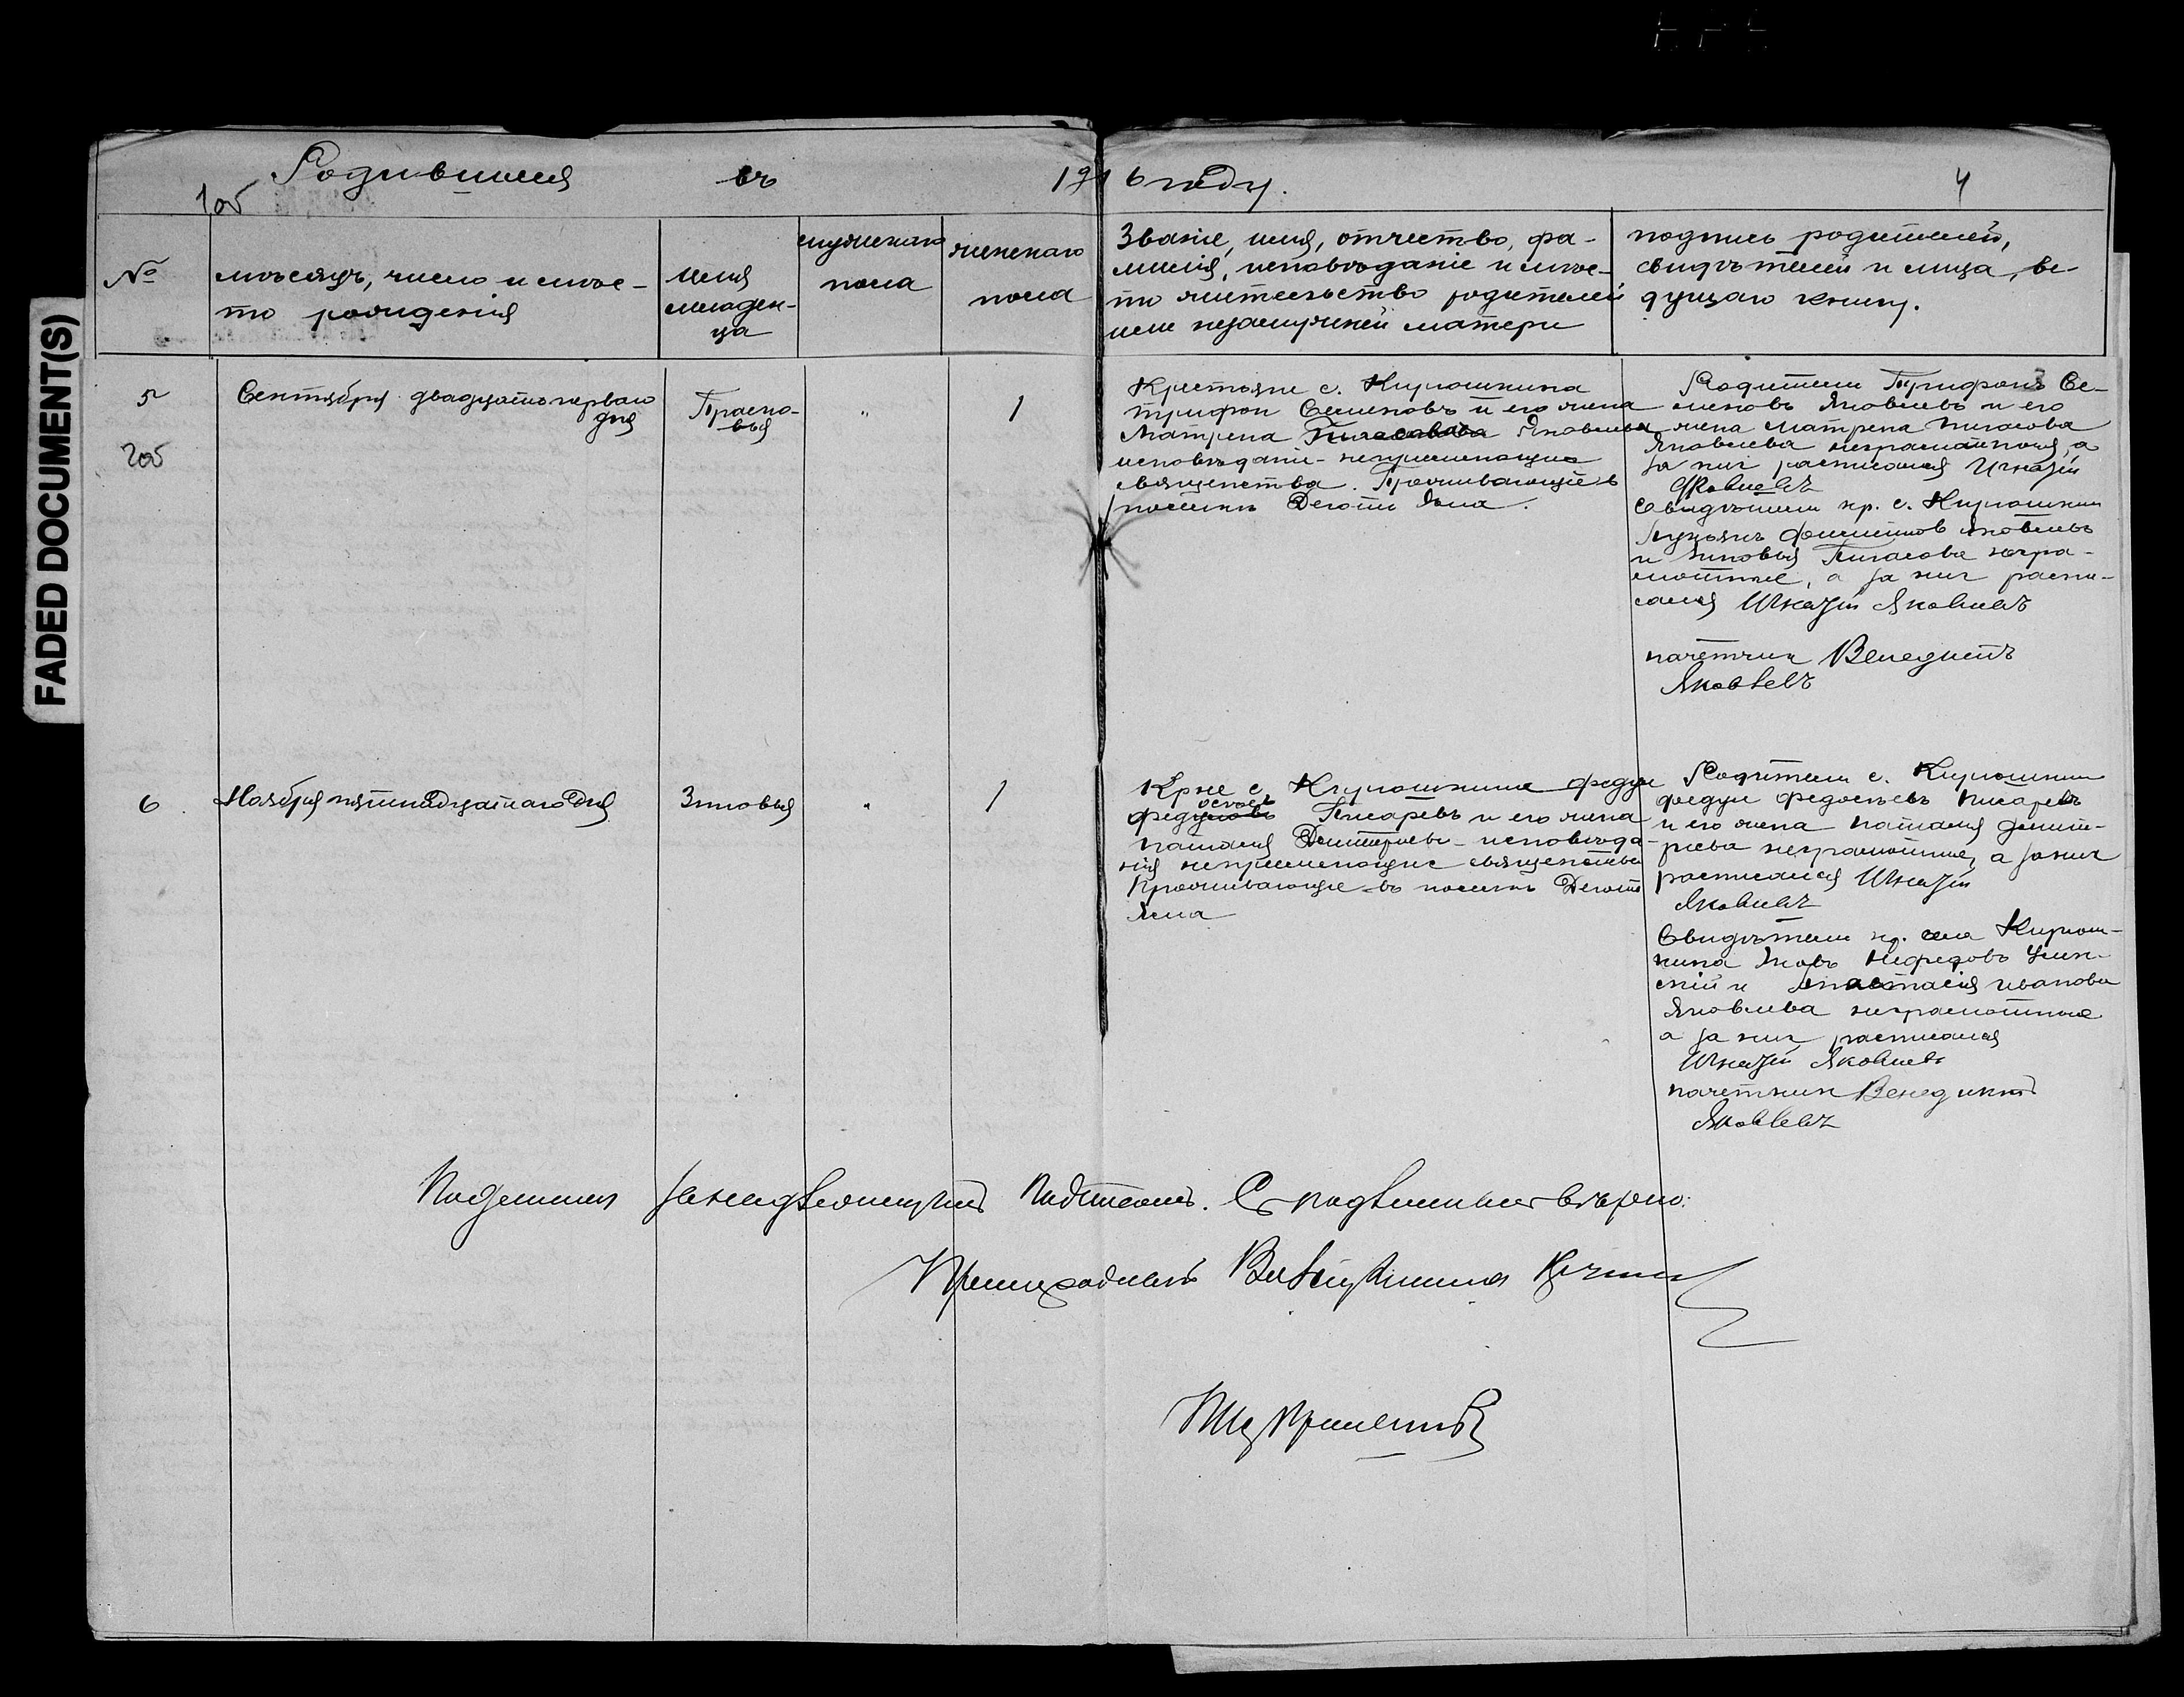 FADED DOCUMENT(S)
Родившіеся въ 1916 году.
4
№
мѣсяцъ, число и мѣс-
то рожденія
имя
младен-
ца
мужскаго
пола
женскаго
пола
Званіе, имя, отчество, фа-
милія, исповѣданіе и мѣс-
то жительство родителей
или незамужней матери
подпись родителей,
свидѣтелей и лица, ве-
дущаго книгу.
5
Сентября двадцать перваго
дня
Праско-
вья
"
1
Крестьяне с. Кирюшкина
Трифон Семеновъ и его жена
Матрена Яковлева
исповѣданіе непріемлющіе
священства. Проживающіе в
поселкѣ
Родители Трифонъ Се-
меновъ Яковлевъ и его
жена Матрена
Яковлева неграмотные, а
за них расписался Игнатій
Яковлевъ
Свидѣтели кр. с. Кирюшкин
Лукьянъ Яковлевъ
и Зиновья негра-
мотные, а за них распи-
сался Игнатій Яковлевъ
начетчик Венедиктъ
Яковлевъ
6
Ноября пятнадцатаго дня
Зиновья
"
1
Крне с. Кирюшкина Федул
Писаревъ и его жена
Наталья Дмитріева исповѣда-
нія непріемлющіе священства
Проживающіе въ поселкѣ
Родители с. Кирюшкин
Федул Федосѣевъ Писаревъ
и его жена Наталья Дмит-
ріева неграмотные, а за них
расписался Игнатій
Яковлевъ
Свидѣтели кр. села Кирюш-
кина Яковъ Нефедовъ
и Анастасія Иванова
Яковлева неграмотные
а за них расписался
Игнатій Яковлевъ
начетчик Венедиктъ
Яковлевъ
Подлинная за надлежащимъ подписомъ. Съ подлиннымъ вѣрно: